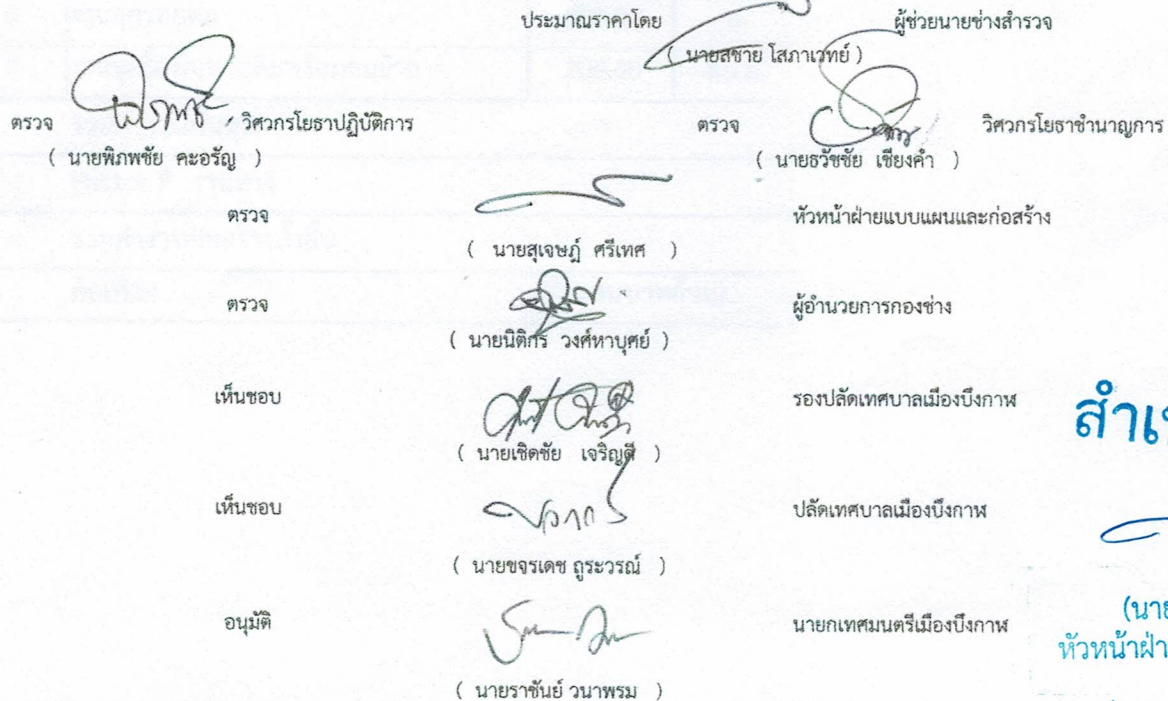 ประมาณราคาโดย ผู้ช่วยนายช่างสำรวจ
( นายสชาย โสภาเวทย์ )
ตรวจ วิศวกรโยธาปฏิบัติการ ตรวจ วิศวกรโยธาชำนาญการ
( นายพิภพชัย คะอรัญ ) ( นายธวัชชัย เชียงคำ )
ตรวจ หัวหน้าฝ่ายแบบแผนและก่อสร้าง
( นายสุเจษฎ์ ศรีเทศ )
ตรวจ ผู้อำนวยการกองช่าง
( นายนิติกร วงศ์หาบุศย์ )
เห็นชอบ รองปลัดเทศบาลเมืองบึงกาฬ
( นายเชิดชัย เจริญดี )
เห็นชอบ ปลัดเทศบาลเมืองบึงกาฬ
( นายขจรเดช ถูระวรณ์ )
อนุมัติ นายกเทศมนตรีเมืองบึงกาฬ
( นายราชันย์ วนาพรม )
สำเ
(นาย
หัวหน้าฝ่า